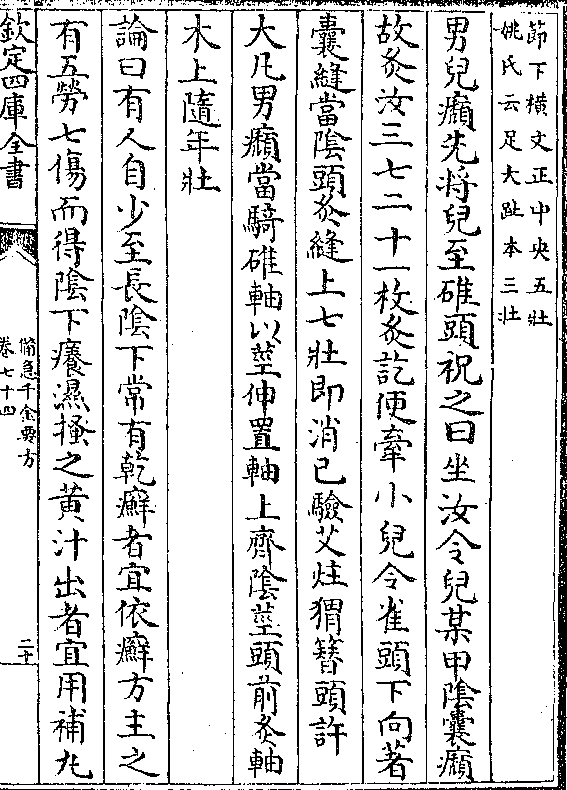 節下横文正中央五壯
姚氏云足大趾本三壯
男兒㿗先将兒至碓頭祝之曰坐汝令兒某甲陰囊㿗
故灸汝三七二十一枚灸訖便牽小兒令雀頭下向著
囊縫當陰頭灸縫上七壯即消已驗艾炷猬簪頭許
大凡男㿗當騎碓軸以莖伸置軸上齊陰莖頭前灸軸
木上隨年壯
論曰有人自少至長陰下常有乾癬者宜依癬方主之
有五勞七傷而得陰下癢濕搔之黄汁出者宜用補丸
欽定四庫全書
備急千金要方
卷七十四
二十